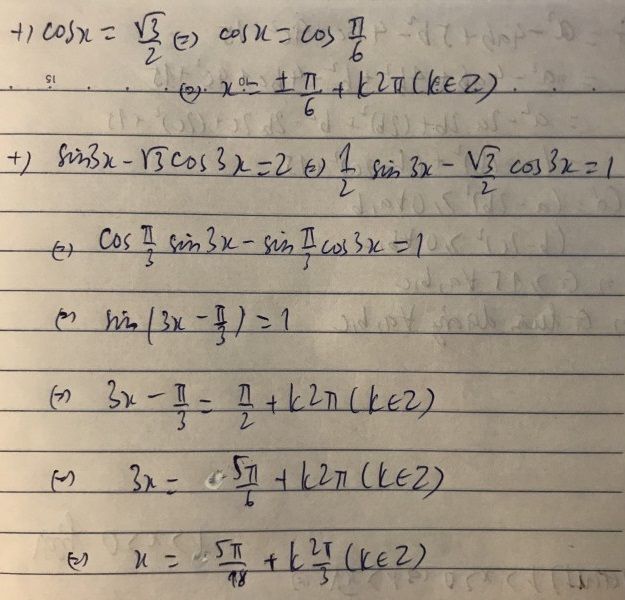 +) cosx = √3/2 (=) cosx = cos π/6
(=) x = ± π/6 + k2π (k∈Z)
+) sin3x - √3 cos3x = 2 (=) 1/2 sin3x - √3/2 cos3x = 1
(=) cos π/3 sin3x - sin π/3 cos3x = 1
(=) sin(3x - π/3) = 1
(=) 3x - π/3 = π/2 + k2π (k∈Z)
(=) 3x = 5π/6 + k2π (k∈Z)
(=) x = 5π/18 + k 2π/3 (k∈Z)